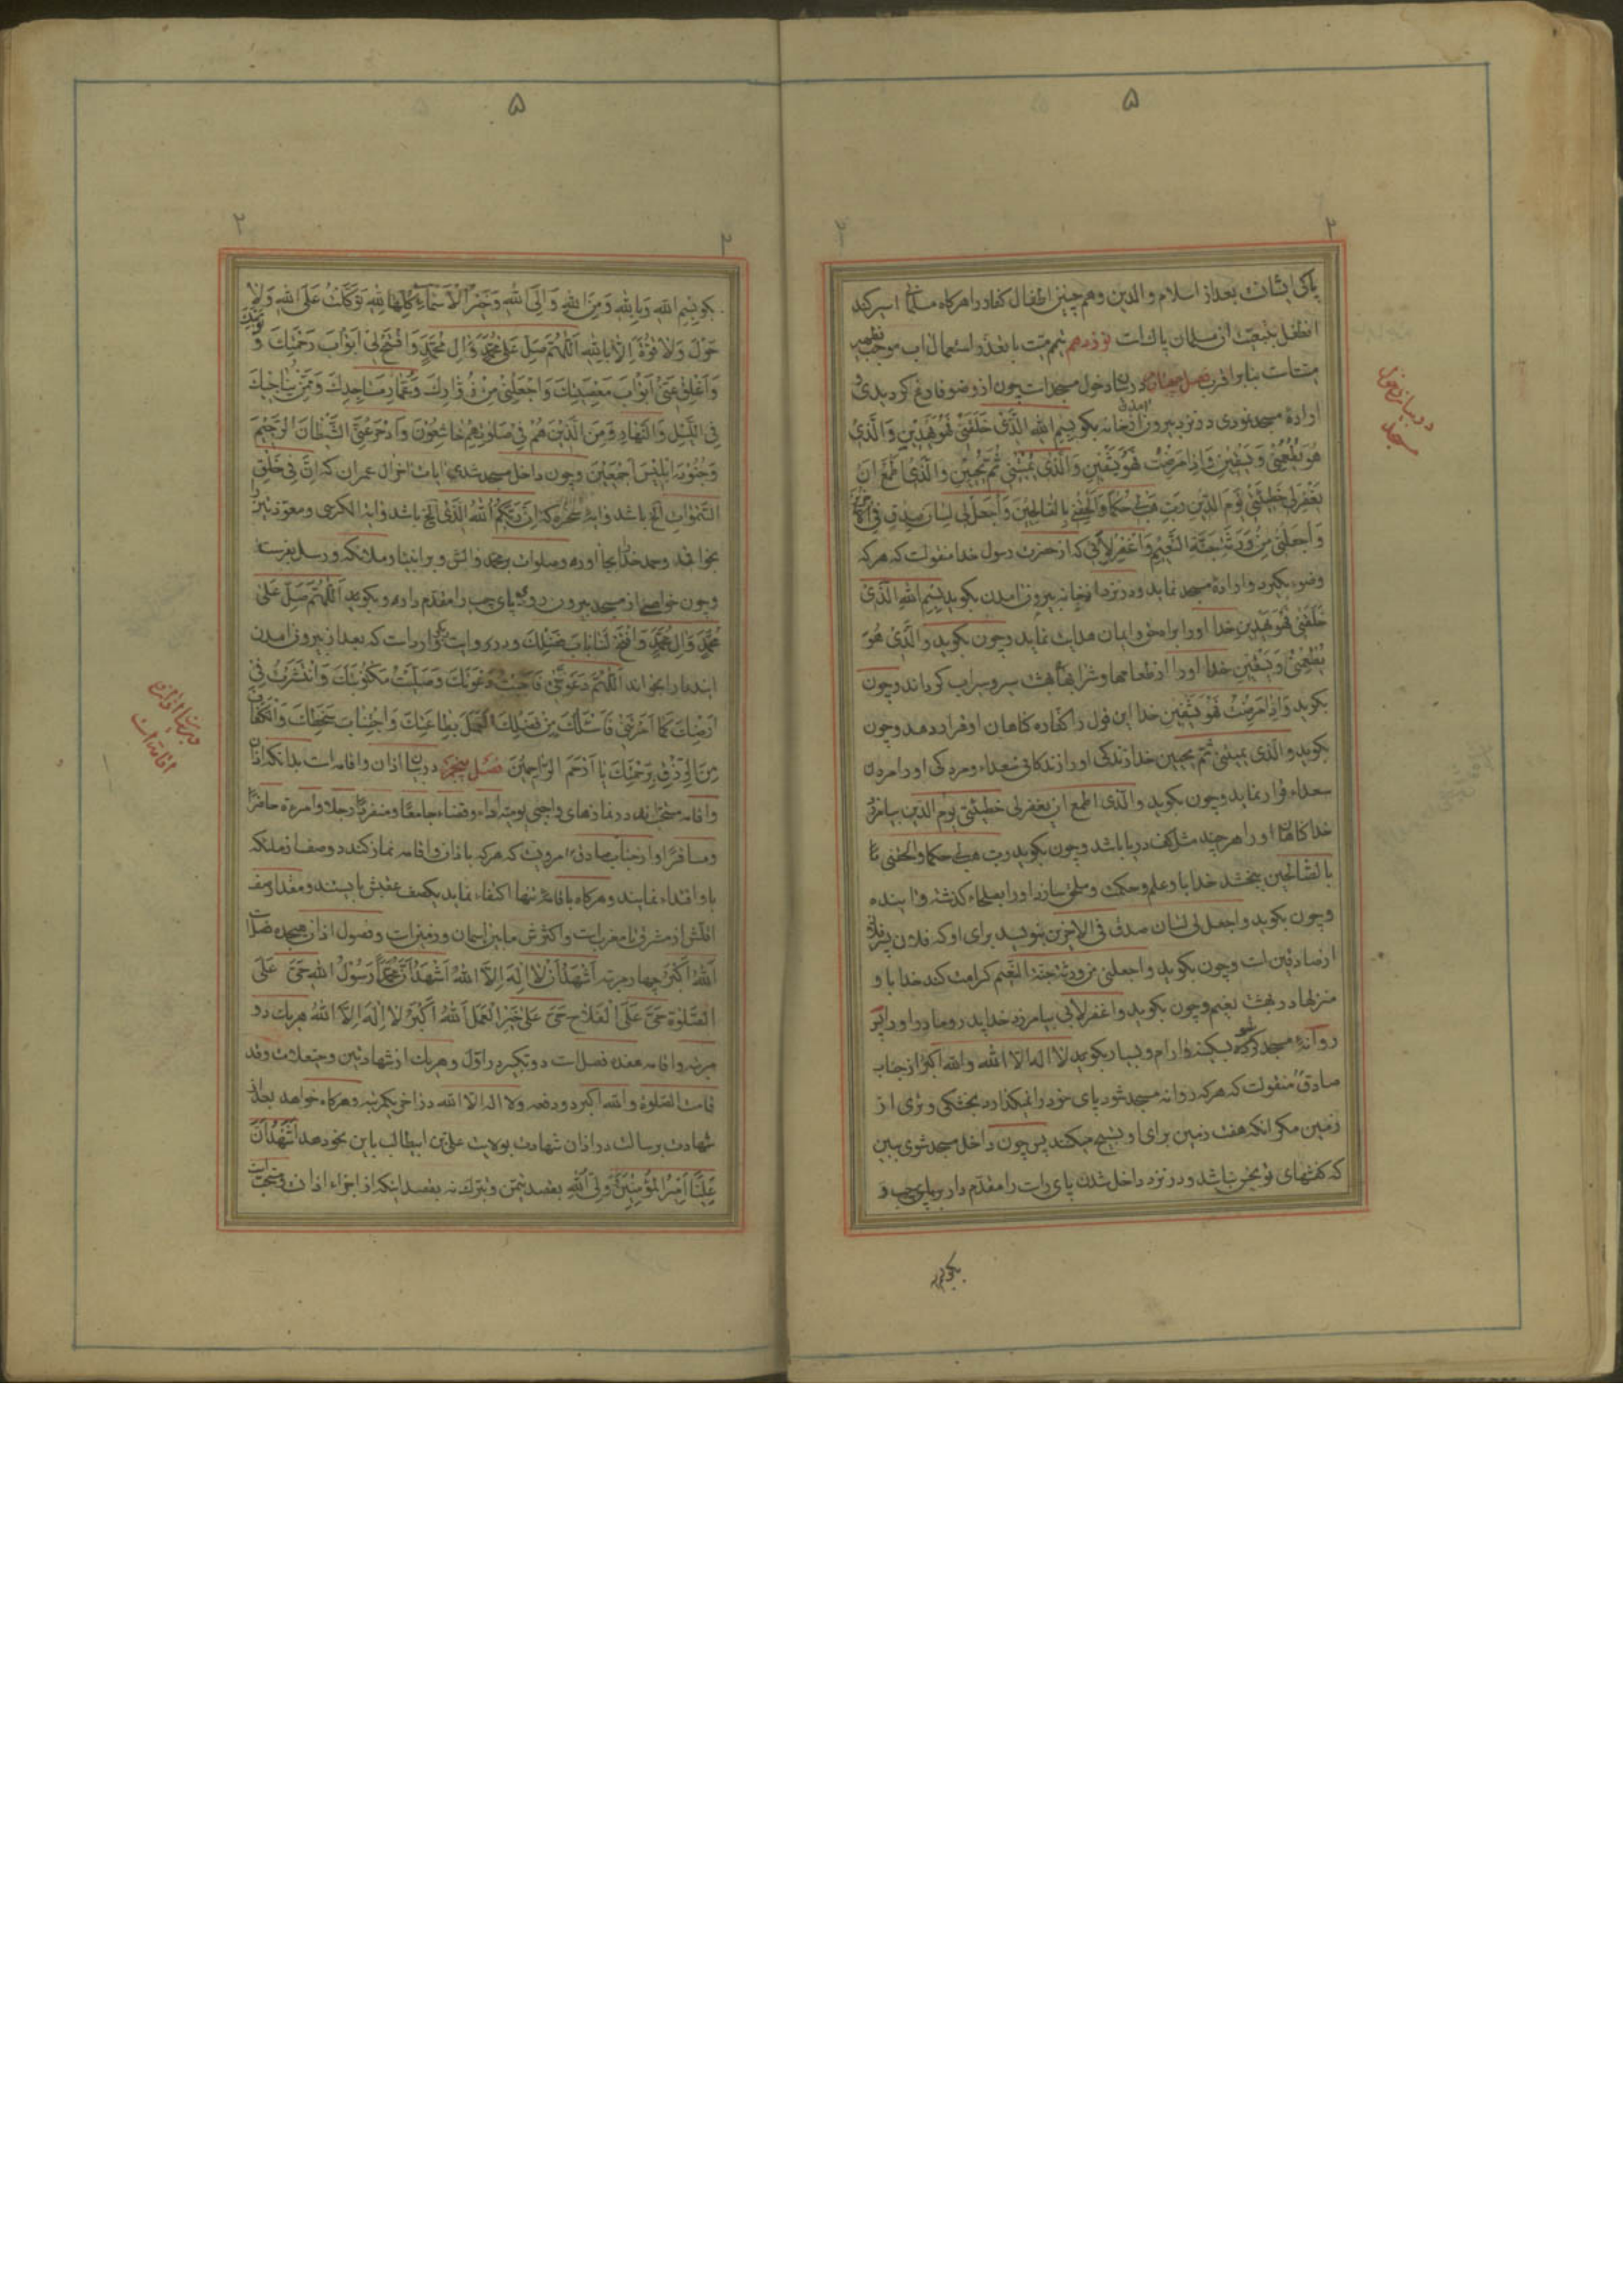 ۵
پاکی ایشان بعد از اسلام والدین و همچنین اطفال کفار را هرکاه مسلمانی اسیر کند
انطفل بتبعیت ان مسلمان پاک است نوزدهم تیمم میت با تعذر استعمال اب موجب تطهیر
میت است بنا بر اقرب فصل چهارم در بیان دخول مسجد است چون از وضو فارغ کردیدی و
ارادهٔ مسجد نمودی در نزد بیرون آمدن از خانه بکو بِسْمِ اللهِ الَّذی خَلَقَنی فَهُوَ یَهْدینِ وَالَّذی
هُوَ یُطْعِمُنی وَیَسْقینِ وَاِذا مَرِضْتُ فَهُوَ یَشْفینِ وَالَّذی یُمیتُنی ثُمَّ یُحْیینِ وَالَّذی اَطْمَعُ اَنْ
یَغْفِرَ لی خَطیئَتی یَوْمَ الدّینِ رَبِّ هَبْ لی حُکْمًا وَاَلْحِقْنی بِالصّالِحینَ وَاجْعَلْ لی لِسانَ صِدْقٍ فِی الْآخِرینَ
وَاجْعَلْنی مِنْ وَرَثَةِ جَنَّةِ النَّعیمِ وَاغْفِرْ لِاَبی که از حضرت رسول خدا منقولست که هرکه
وضوء بکیرد و ارادهٔ مسجد نماید و در نزد از خانه بیرون امدن بکوید بِسْمِ اللهِ الَّذی
خَلَقَنی فَهُوَ یَهْدینِ خدا او را براه حق و ایمان هدایت نماید و چون بکوید والَّذی هُوَ
یُطْعِمُنی وَیَسْقینِ خدا او را از طعامها و شرابهای بهشت سیر و سیراب کرداند و چون
بکوید وَاِذا مَرِضْتُ فَهُوَ یَشْفینِ خدا این قول را کفاره کناهان او قرار دهد و چون
بکوید والّذی یمیتنی ثمّ یحیین خدا زندکی او را زندکانی سعداء و مردکی او را مردن
سعداء قرار نماید و چون بکوید والّذی اطمع ان یغفر لی خطیئتی یوم الدین بیامرزد
خدا کناهان او را هر چند مثل کف دریا باشد و چون بکوید رب هب لی حکما والحقنی
بالصّالحین ببخشد خدا باو علم و حکمت و ملحق سازد او را بصلحاء کذشته و اینده
و چون بکوید واجعل لی لسان صدق فی الاخرین بنویسد برای او که فلان پسر فلان
از صادقین است و چون بکوید واجعلنی من ورثة جنّة النّعیم کرامت کند خدا باو
منزلها در بهشت نعیم و چون بکوید واغفر لابی بیامرزد خدا پدر و مادر او را پس
روانهٔ مسجد شو بسکینه و ارام و بسیار بکوید لا اله الا الله والله اکبر از جناب
صادقؑ منقولست که هرکه روانه مسجد شود پای خود را نمیکذارد بخشکی و تری از
زمین مکر انکه هفت زمین برای او تسبیح میکند پس چون داخل مسجد شوی ببین
که کفشهای تو نجس نباشد و در نزد داخل شدن پای راست را مقدّم دار بر پای چپ و
در بیان دخول
مسجد
۵
بکو بِسْمِ اللهِ وَبِاللهِ وَمِنَ اللهِ وَاِلَی اللهِ وَخَیْرُ الْاَسْماءِ کُلِّها لِلّهِ تَوَکَّلْتُ عَلَی اللهِ وَلا
حَوْلَ وَلا قُوَّةَ اِلّا بِاللهِ اَللّهُمَّ صَلِّ عَلی مُحَمَّدٍ وَالِ مُحَمَّدٍ وَافْتَحْ لی اَبْوابَ رَحْمَتِکَ وَ تَوْبَتِکَ
وَاَغْلِقْ عَنّی اَبْوابَ مَعْصِیَتِکَ وَاجْعَلْنی مِنْ زُوّارِکَ وَعُمّارِ مَساجِدِکَ وَمِمَّنْ یُناجیکَ
فِی اللَّیْلِ وَالنَّهارِ وَمِنَ الَّذینَ هُمْ فی صَلوتِهِمْ خاشِعُونَ وَادْحَرْ عَنِّی الشَّیْطانَ الرَّجیمَ
وَجُنُودَ اِبْلیسَ اَجْمَعینَ و چون داخل مسجد شدی ایات اخر ال عمران که اِنَّ فی خَلْقِ
السَّمٰواتِ الخ باشد و ایهٔ سخره که اِنَّ رَبَّکُمُ اللهُ الَّذی الخ باشد و ایة الکرسی و معوذتین را
بخوانند و حمد خدا بجا آورده و صلوات بر محمد و الش و بر انبیا و ملائکه و رسل بفرست
و چون خواهی از مسجد بیرون روی پای چپ را مقدّم داره و بکوید اَللّهُمَّ صَلِّ عَلی
مُحَمَّدٍ وَالِ مُحَمَّدٍ وَافْتَحْ لَنا بابَ فَضْلِکَ و در روایت وارد است که بعد از بیرون امدن
ایندعا را بخواند اَللّهُمَّ دَعَوْتَنی فَاَجَبْتُ دَعْوَتَکَ وَصَلَّیْتُ مَکْتُوبَتَکَ وَانْتَشَرْتُ فی
اَرْضِکَ کَما اَمَرْتَنی فَاَسْئَلُکَ مِنْ فَضْلِکَ الْعَمَلَ بِطاعَتِکَ وَاجْتِنابَ سَخَطِکَ وَالْکَفافَ
مِنَ الرِّزْقِ بِرَحْمَتِکَ یا اَرْحَمَ الرّاحِمینَ فصل پنجم در بیان اذان و اقامه است بدانکه اذان
و اقامه مستحبّ‌اند در نمازهای واجبی یومیّه اداء و قضاء جامعًا و منفردًا رجلا و امرءة حاضرًا
و مسافرًا و از جناب صادقؑ مرویست که هرکه باذان و اقامه نماز کند دو صف از ملئکه
باو اقتداء نمایند و هرکاه باقامهٔ تنها اکتفاء نماید یکصف عقبش بایستند و مقدار صف
اقلّش از مشرق تا مغربست و اکثرش مابین اسمان و زمین است و فصول اذان هیجده فصل است
اَللهُ اَکْبَرُ چهار مرتبه اَشْهَدُ اَنْ لا اِلهَ اِلَّا اللهُ اَشْهَدُ اَنَّ مُحَمَّدًا رَسُولُ اللهِ حَیَّ عَلَی
الصَّلوةِ حَیَّ عَلَی الْفَلاحِ حَیَّ عَلی خَیْرِ الْعَمَلِ اَللهُ اَکْبَرُ لا اِلهَ اِلَّا اللهُ هر یک دو
مرتبه و اقامه هفده فصل است دو تکبیر در اوّل و هر یک از شهادتین و حیّعلات و قد
قامت الصّلوة و الله اکبر دو دفعه و لا اله الا الله در اخر یکمرتبه و هرکاه خواهد بعد از
شهادت برسالت در اذان شهادت بولایت علی بن ابیطالب باین نحو دهد اَشْهَدُ اَنَّ
عَلِیًّا اَمیرُ الْمُؤْمِنینَ وَلِیُّ اللهِ بقصد تیمّن و تبرّک نه بقصد اینکه از اجزاء اذان و مستحبات
در بیان اذان و
اقامه است
بکو بسم